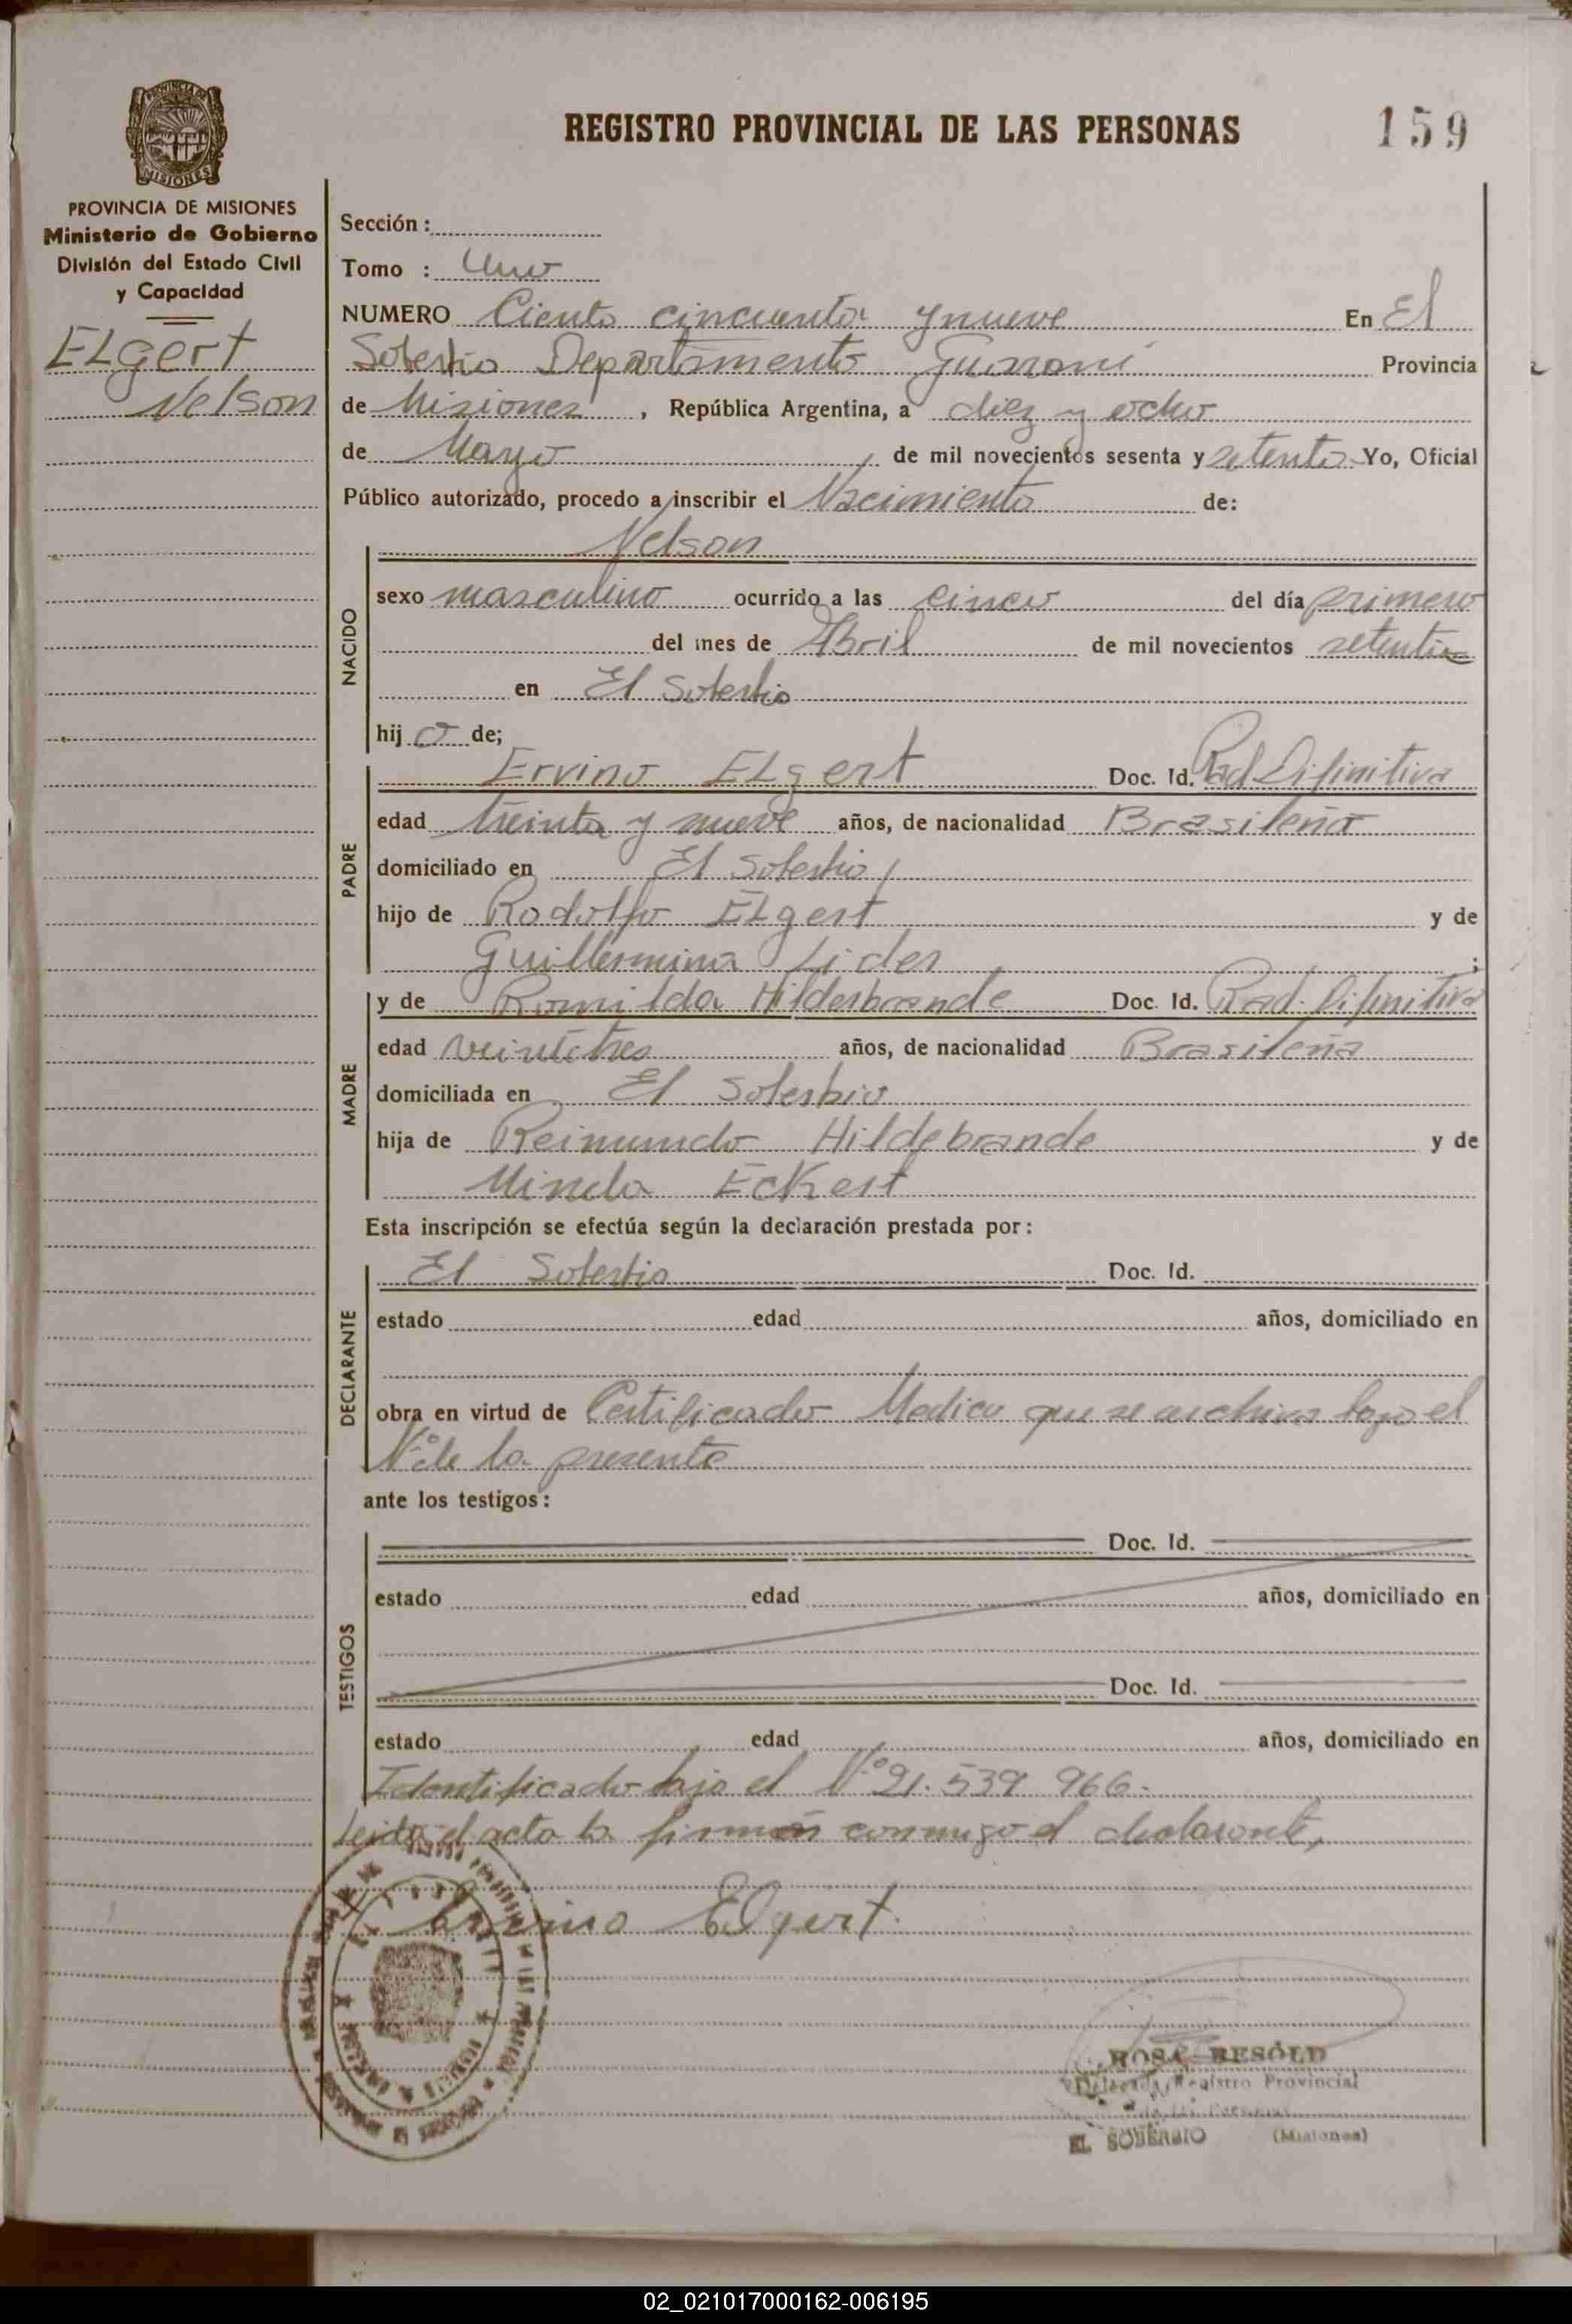 REGISTRO PROVINCIAL DE LAS PERSONAS
159
PROVINCIA DE MISIONES
PROVINCIA DE MISIONES
Ministerio de Gobierno
División del Estado Civil
y Capacidad
ELgert
Nelson
Sección :
Tomo : Uno
NUMERO Ciento cincuenta y nueve En El
Soberbio Departamento Guaraní Provincia
de Misiones , República Argentina, a diez y ocho
de Mayo de mil novecientos sesenta y setenta Yo, Oficial
Público autorizado, procedo a inscribir el Nacimiento de:
Nelson
NACIDO
sexo masculino ocurrido a las cinco del día primero
del mes de Abril de mil novecientos setenta
en El Soberbio
hij o de;
PADRE
Ervino ELgert Doc. Id. Rad Difinitiva
edad treinta y nueve años, de nacionalidad Brasileña
domiciliado en El Soberbio
hijo de Rodolfo ELgert y de
Guillermina Lider ;
MADRE
y de Romilda Hilderbrande Doc. Id. Rad. Difinitiva
edad veintitres años, de nacionalidad Brasileña
domiciliada en El Soberbio
hija de Reimundo Hildebrande y de
Minda Eckert
Esta inscripción se efectúa según la declaración prestada por:
DECLARANTE
El Soberbio Doc. Id.
estado edad años, domiciliado en
obra en virtud de Certificado Medico que se archiva bajo el
Nº de la presente
ante los testigos:
TESTIGOS
Doc. Id.
estado edad años, domiciliado en
Doc. Id.
estado edad años, domiciliado en
Identificado bajo el Nº 21.539 966.
Leida el acta la firman conmigo el declarante,
Ervino Elgert.
ROSA RESOLD
Delegada Registro Provincial
de las Personas
EL SOBERBIO (Misiones)
02_021017000162-006195